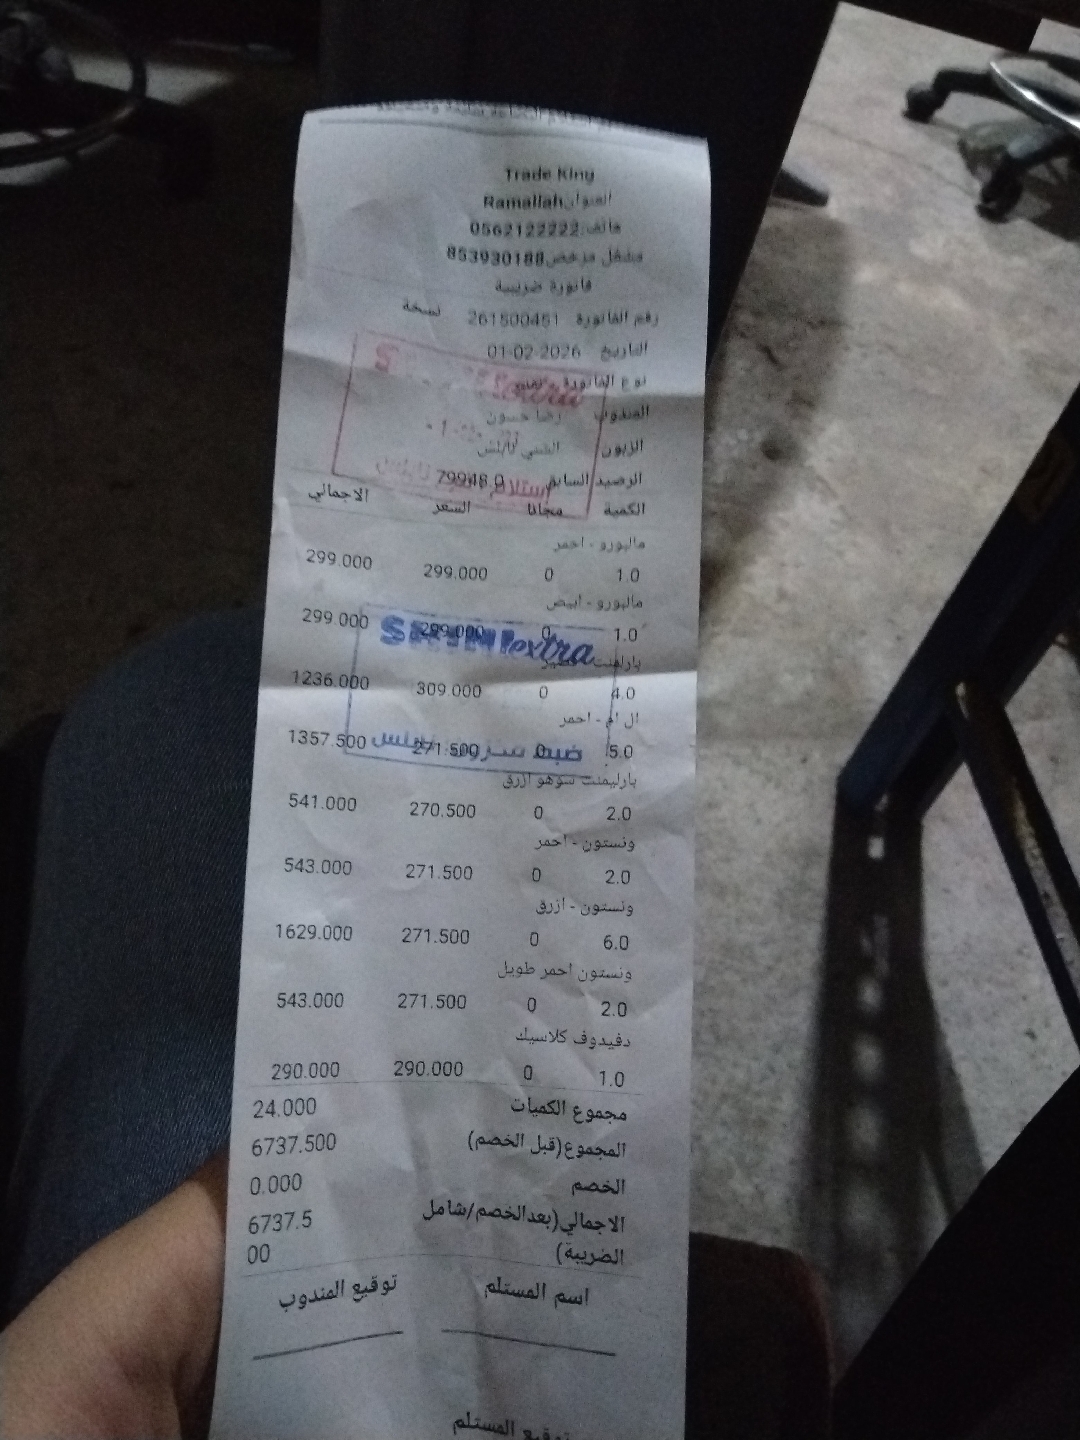 Trade King
العنوان:Ramallah
هاتف:0562122222
مشغل مرخص:853930188
فاتورة ضريبية
رقم الفاتورة 261500451 نسخة
التاريخ 01-02-2026
نوع الفاتورة
المندوب رضا حسون
الزبون نابلس
الرصيد السابق 79948.0
الكمية مجانا السعر الاجمالي
مالبورو - احمر
1.0 0 299.000 299.000
مالبورو - ابيض
1.0 0 299.000 299.000
بارليمنت
4.0 0 309.000 1236.000
ال ام - احمر
5.0 0 271.500 1357.500
بارليمنت سوهو ازرق
2.0 0 270.500 541.000
ونستون - احمر
2.0 0 271.500 543.000
ونستون - ازرق
6.0 0 271.500 1629.000
ونستون احمر طويل
2.0 0 271.500 543.000
دفيدوف كلاسيك
1.0 0 290.000 290.000
مجموع الكميات 24.000
المجموع(قبل الخصم) 6737.500
الخصم 0.000
الاجمالي(بعدالخصم/شامل 6737.5
الضريبة) 00
اسم المستلم توقيع المندوب
توقيع المستلم
extra
استلام نابلس
extra
نابلس